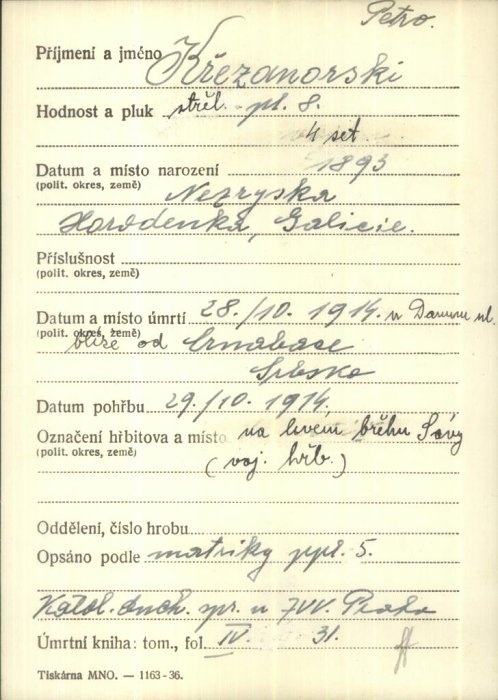 Petro.
Příjmení a jméno Křezanorski
Hodnost a pluk střel. pl. 8.
4 set.
Datum a místo narození 1893
(polit. okres, země) Nezryska
Horodenka, Galicie.
Příslušnost
(polit. okres, země)
Datum a místo úmrtí 28./10. 1914. u
(polit. okres, země) blíže od Crnabase
Srbsko
Datum pohřbu 29./10. 1914.
Označení hřbitova a místo na levem břehu Sávy
(polit. okres, země) (voj. hřb.)
Oddělení, číslo hrobu
Opsáno podle matriky ppl. 5.
Katol. duch. spr. u ZVV. Praha
Úmrtní kniha: tom., fol. IV. 31.
Tiskárna MNO. — 1163-36.